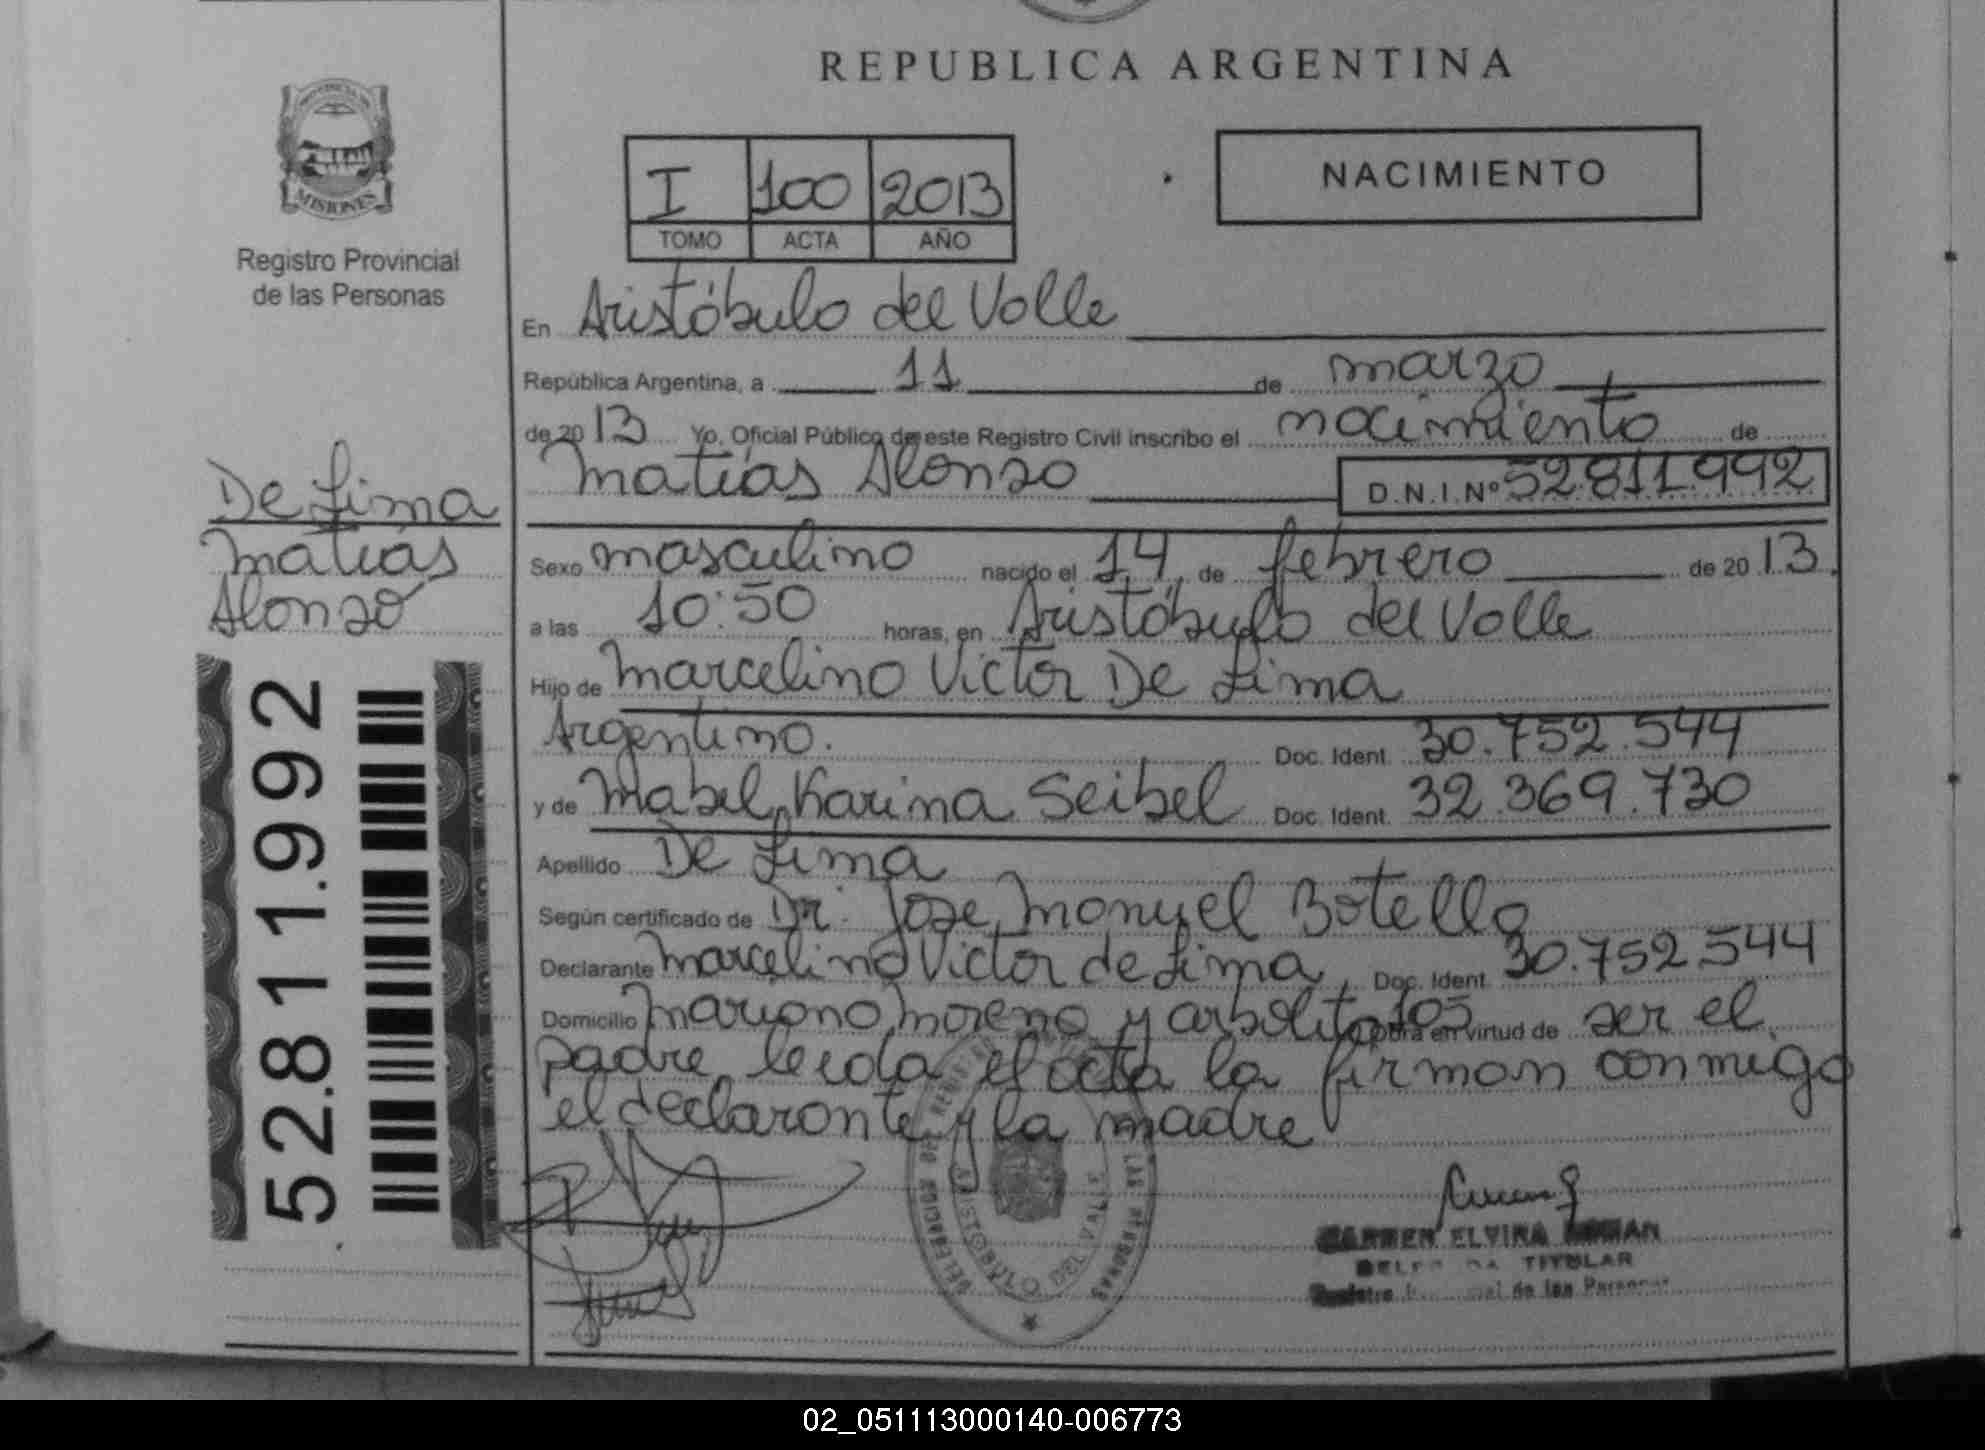 REPUBLICA ARGENTINA
MISIONES
Registro Provincial
de las Personas
I 100 2013
TOMO ACTA AÑO
NACIMIENTO
En Aristóbulo del Valle
República Argentina, a 11 de marzo
de 2013 Yo, Oficial Público de este Registro Civil inscribo el nacimiento de
Matías Alonzo D.N.I.Nº 52.811.992
De Lima
Matías
Alonzo
52.811.992
Sexo masculino nacido el 14 de febrero de 2013.
a las 10:50 horas, en Aristóbulo del Valle
Hijo de Marcelino Victor De Lima
Argentino. Doc. Ident. 30.752.544
y de Mabel Karina Seibel Doc. Ident. 32.369.730
Apellido De Lima
Según certificado de Dr. Jose Manuel Botello
Declarante Marcelino Victor de Lima Doc. Ident. 30.752.544
Domicilio Mariano Moreno y arbolito 105 obra en virtud de ser el
padre leida el acta la firman conmigo
el declarante y la madre
DELEGACION DEL REGISTRO LAS PERSONAS
ARISTOBULO DEL VALLE
CARMEN ELVIRA
TITULAR
Registro de las Personas
02_051113000140-006773